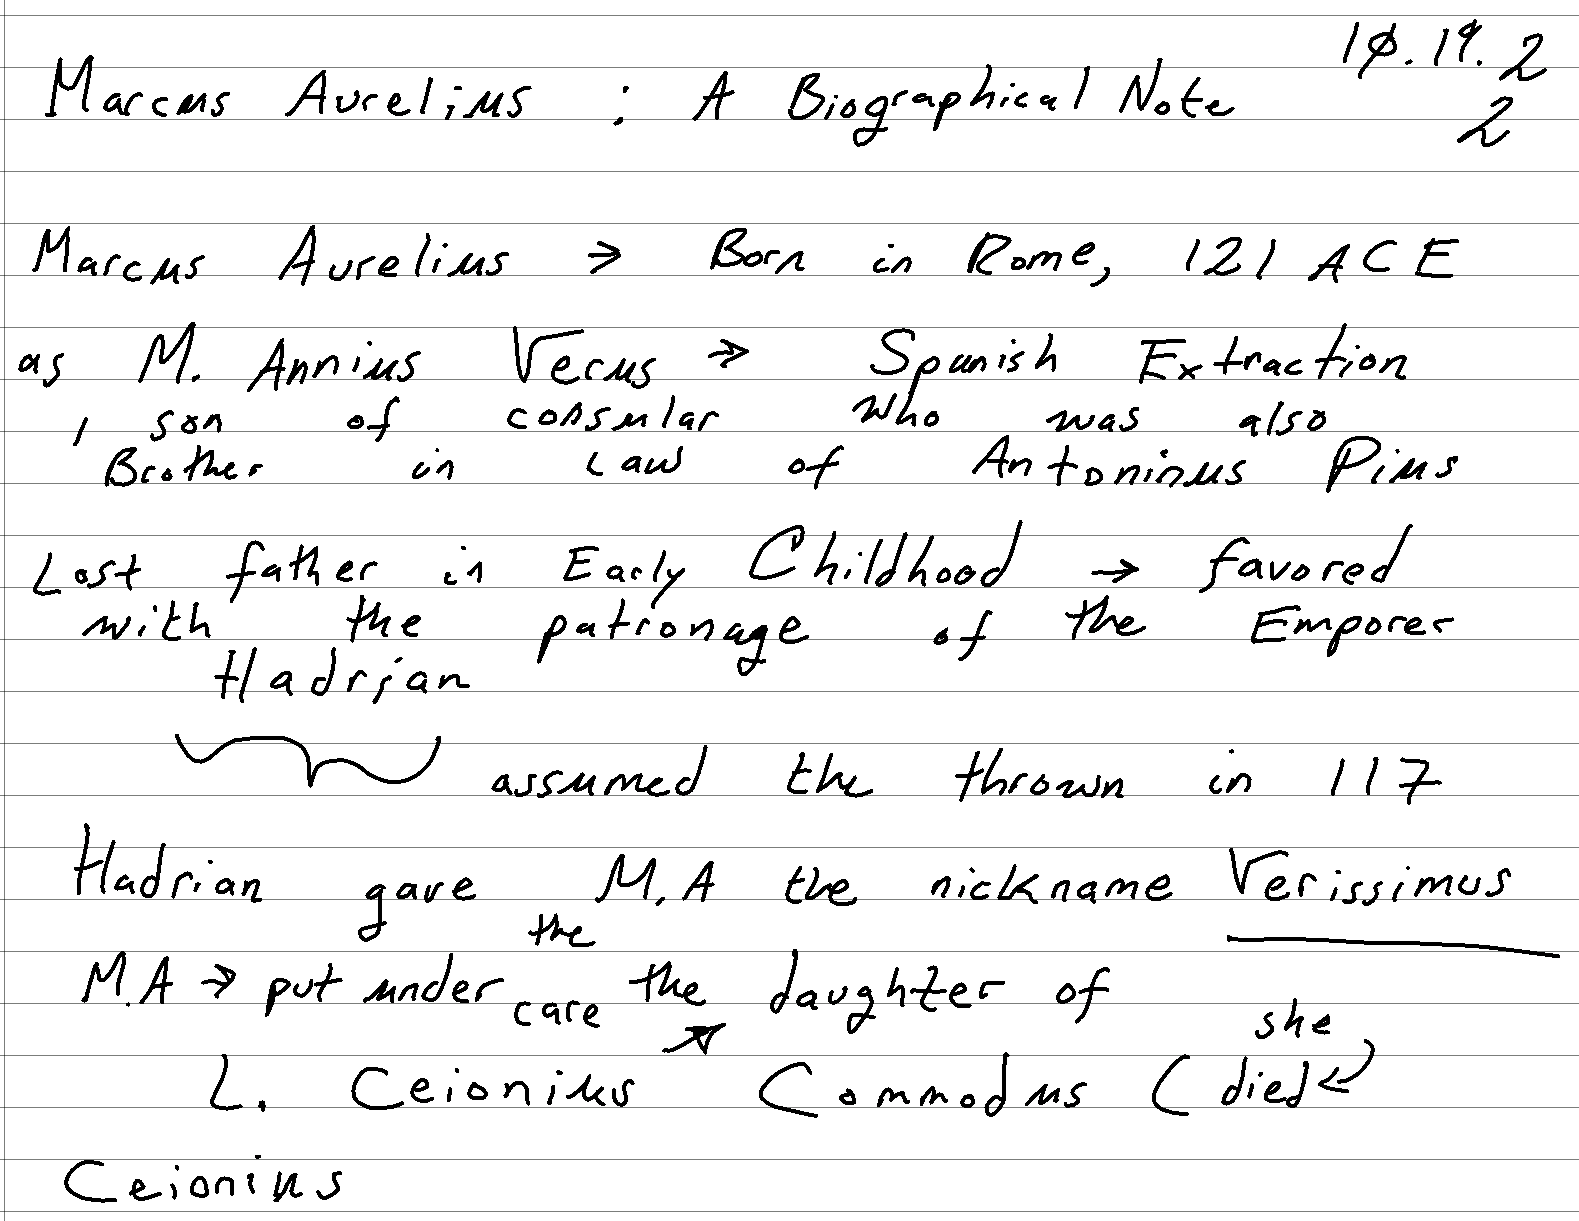 Marcus Aurelius : A Biographical Note 10.19.2
2
Marcus Aurelius → Born in Rome, 121 ACE
as M. Annius Verus → Spanish Extraction
, son of consular who was also
Brother in Law of Antoninus Pius
Lost father in Early Childhood → favored
with the patronage of the Emporer
Hadrian
assumed the thrown in 117
Hadrian gave M.A the nickname Verissimus
the
M.A → put under care the daughter of
she
L. Ceionius Commodus (died
Ceionius